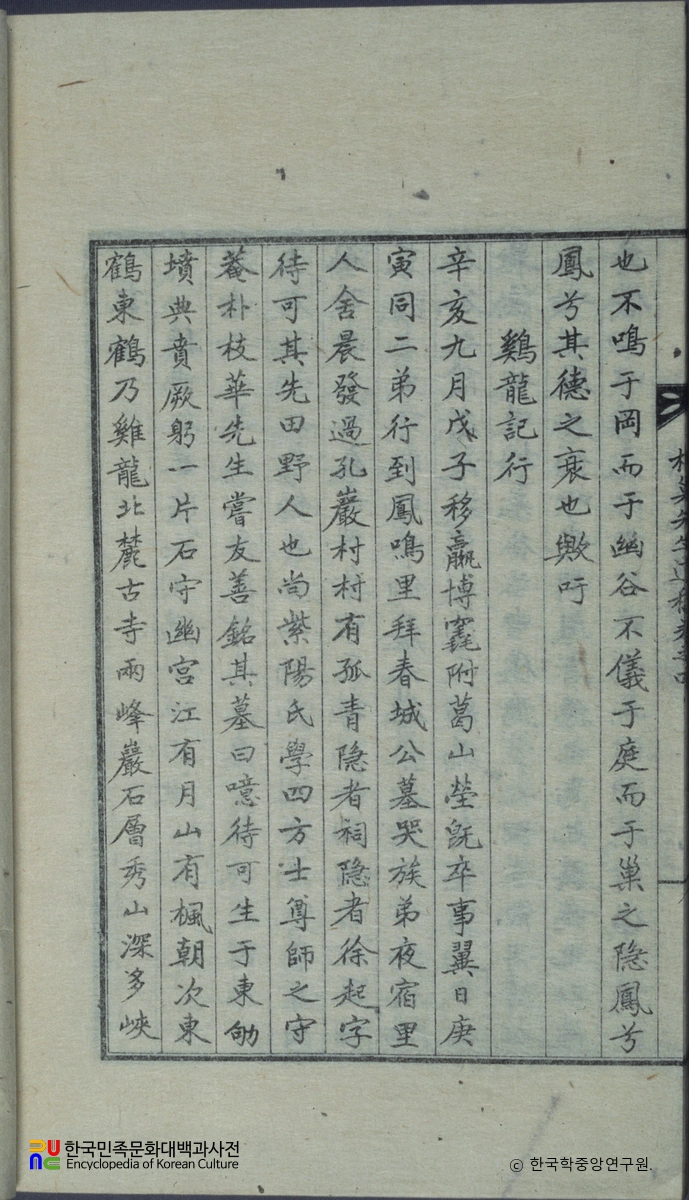 也不鳴于岡而于幽谷不儀于庭而于巢之隐鳳兮
鳳兮其德之衰也歟吁
鷄龍記行
辛亥九月戊子移羸博窆附葛山塋旣卒事翼日庚
寅同二弟行到鳳鳴里拜春城公墓哭族弟夜宿里
人舍晨發過孔巖村村有孤青隐者祠隐者徐起字
待可其先田野人也尚紫陽氏學四方士尊師之守
菴朴枝華先生嘗友善銘其墓曰噫待可生于東劬
墳典賁厥躬一片石守幽宮江有月山有楓朝次東
鶴東鶴乃雞龍北麓古寺兩峰巖石層秀山深多峽
한국민족문화대백과사전
Encyclopedia of Korean Culture
© 한국학중앙연구원.